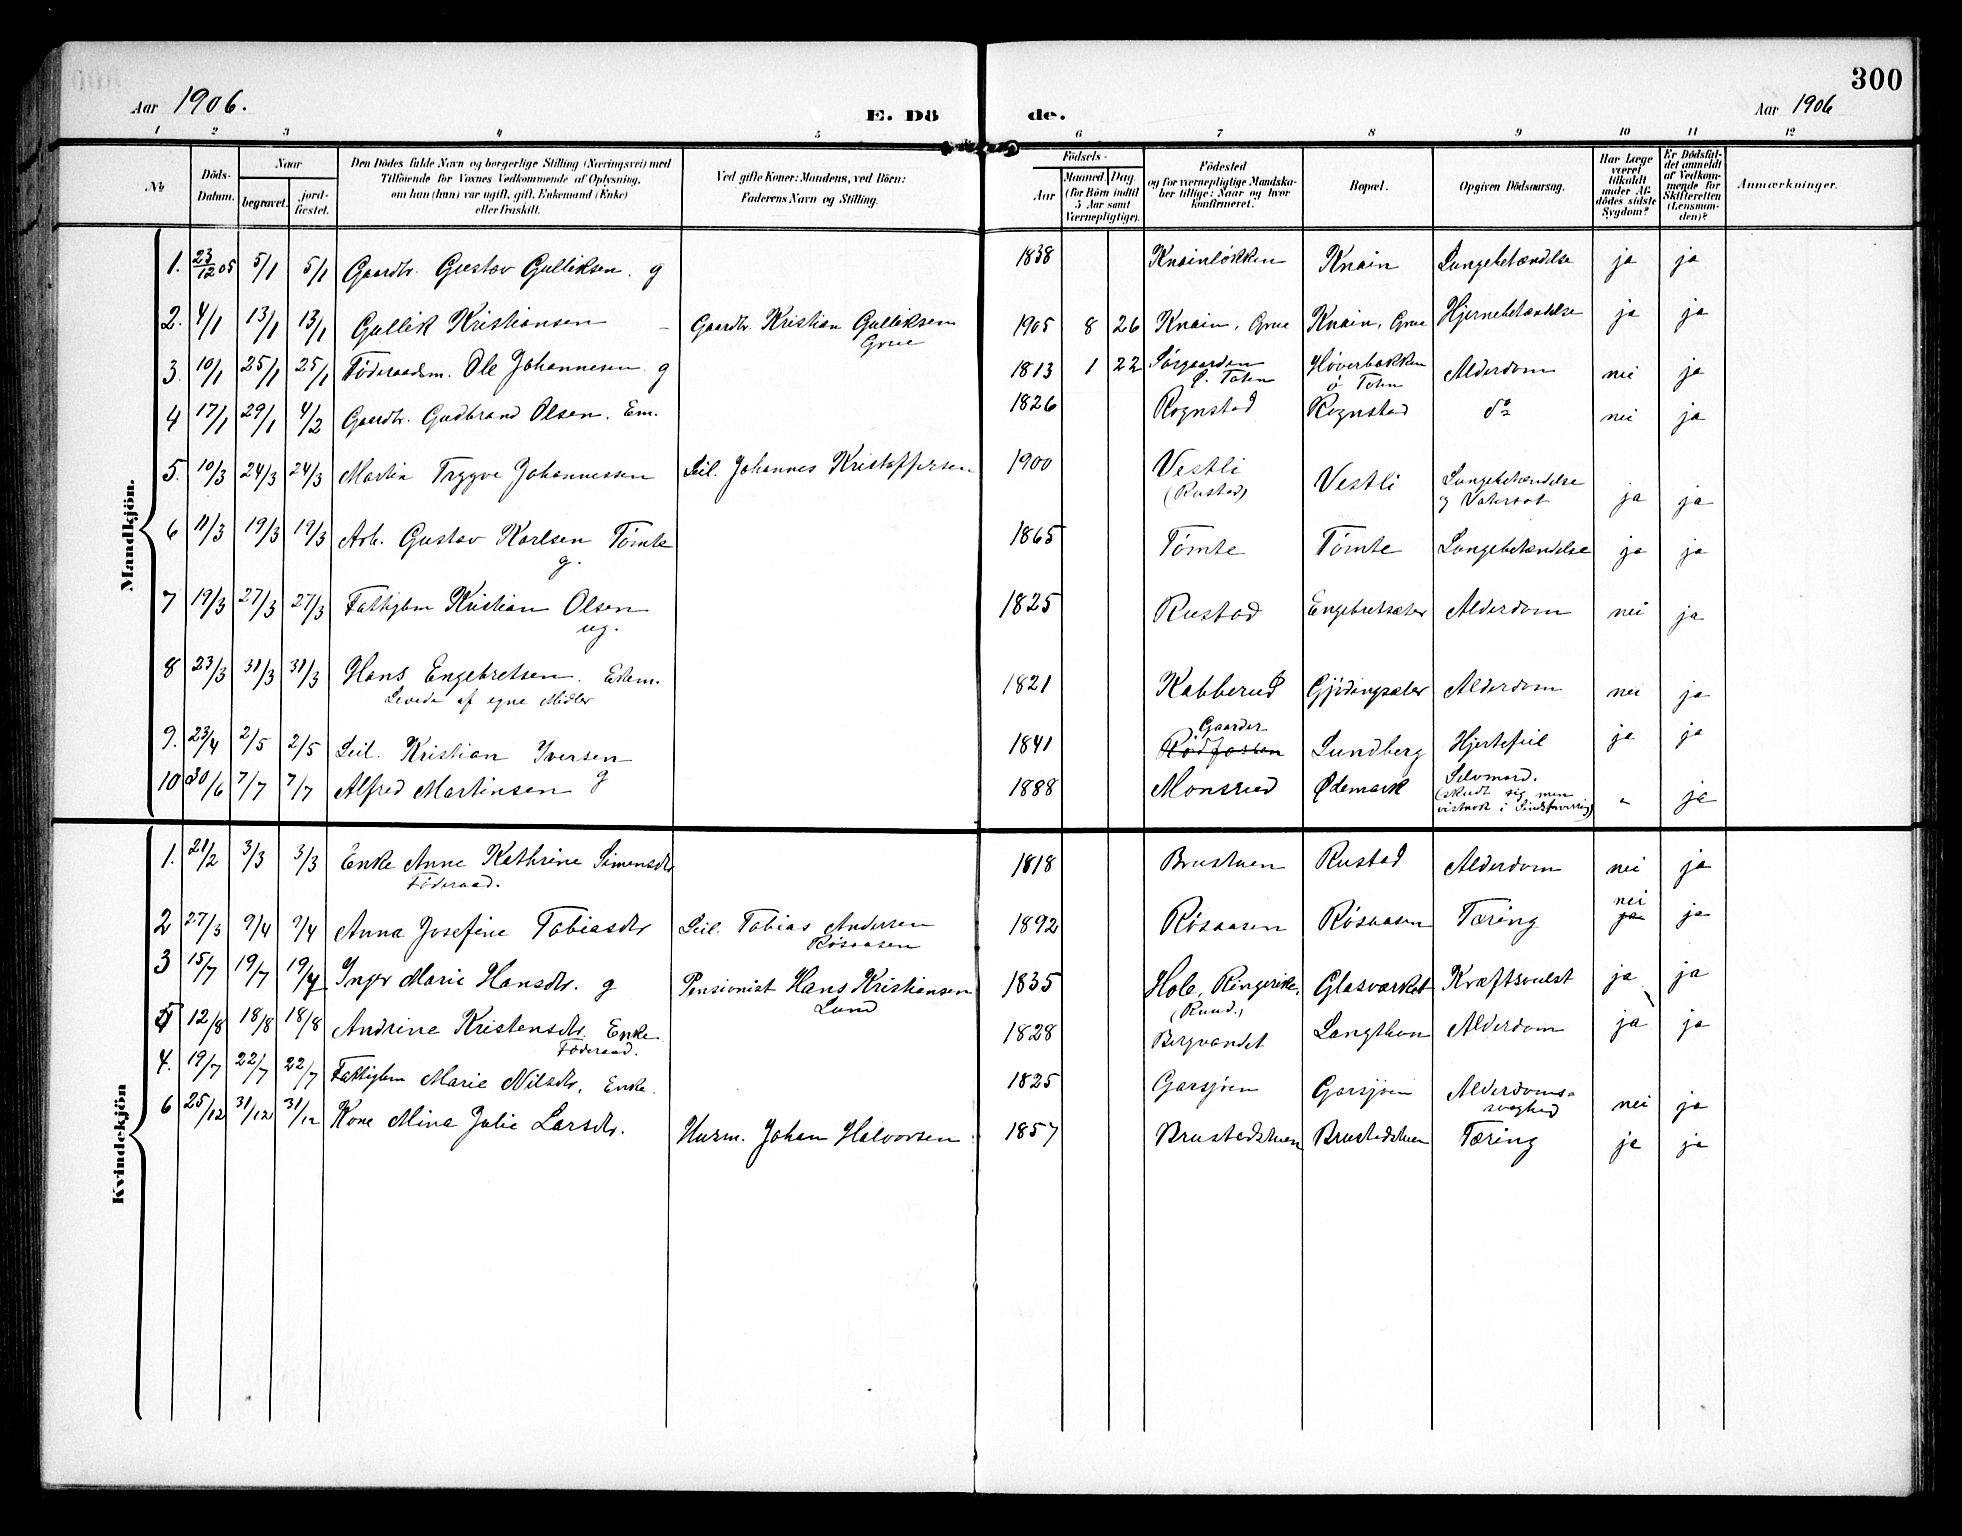 300
Aar 1906. E. Dö de. Aar 1906
1 2 3 4 5 6 7 8 9 10 11 12
No.
Döds-Datum.
Naar
begravet.
jordfæstet.
Den Dödes fulde Navn og borgerlige Stilling (Næringsvei) med
Tilföiende för Voxnes Vedkommende af Oplysning,
om han (hun) var ugift, gift, Enkemand (Enke)
eller fraskilt.
Ved gifte Koner: Mandens, ved Börn:
Faderens Navn og Stilling.
Födsels-
Aar
Maaned. Dag.
(for Börn indtil
5 Aar samt
Værnepligtige).
Födested
og for værnepligtige Mandska-
ber tillige: Naar og hvor
konfirmeret.
Bopæl.
Opgiven Dödsaarsag.
Har Læge
været
tilkaldt
under Af-
dödes sidste
Sygdom?
Er Dödsfal-
det anmeldt
af Vedkom-
mende for
Skifteretten
(Lensman-
den)?
Anmærkninger.
Mandkjön.
1. 23/12 05 5/1 5/1 Gaardbr. Gustav Gulliksen. g 1838 Knainløkken Knain Lungebetændelse ja ja
2. 4/1 13/1 13/1 Gullik Kristiansen – Gaardbr. Kristian Gulliksen 1905 8 26 Knain, Grue Knain, Grue Hjernebetændelse ja ja
Grue
3. 10/1 25/1 25/1 Føderaadsm. Ole Johannesen g 1813 1 22 Sørgaarden Høverbakken Alderdom nei ja
Ø. Toten ø Toten
4 17/1 29/1 4/2 Gaardbr. Gudbrand Olsen. Em. 1826 Rognstad Rognstad do nei ja
5. 10/3 24/3 24/3 Martin Trygve Johannessen Leil. Johannes Kristoffersen 1900 Vestli Vestli Lungebetændelse
(Rustad) og Vatersot ja ja
6 11/3 19/3 19/3 Arb. Gustav Karlsen Tømte 1865 Tømte Tømte Lungebetændelse ja ja
g.
7 19/3 27/3 27/3 Fattiglem Kristian Olsen 1825 Rustad Engebretsæter Alderdom nei ja
ug.
8 23/3 31/3 31/3 Hans Engebretsen. Ekem. 1821 Kabberud Gjødingsæter Alderdom nei ja
Levede af egne Midler
Gaarder
9. 23/4 2/5 2/5 Leil. Kristian Iversen 1841 Lundberg Hjertefeil ja ja
g
10 30/6 7/7 7/7 Alfred Martinsen 1888 Monsrud Ødemark Selvmord. „ ja
(skudt sig men
vistnok i Sindsforvirring)
Kvindekjön
1. 21/2 3/3 3/3 Enke Anne Kathrine Simensdtr 1818 Brustuen Rustad Alderdom nei ja
Føderaad.
nei
2 27/3 9/4 9/4 Anna Josefine Tobiasdtr Leil. Tobias Andersen 1892 Røsaasen Røsaasen Tæring ja ja
Røsaasen
3 15/7 19/7 19/7 Inger Marie Hansdtr. g Pensionist Hans Kristiansen 1835 Hole, Ringerike, Glasværket Kræftsvulst ja ja
Lund (Ruud.)
5 12/8 18/8 18/8 Andrine Kristensdtr. Enke 1828 Bergvandet Langthon Alderdom ja ja
Føderaad.
4. 19/7 22/7 22/7 Fattiglem Marie Nilsdtr, Enke. 1825 Garsjøen Garsjøen Alderdoms- nei ja
svaghed
6 25/12 31/12 31/12 Kone Mina Julie Larsdtr. Husm. Johan Halvorsen 1857 Brustadstuen Brustadstuen Tæring ja ja